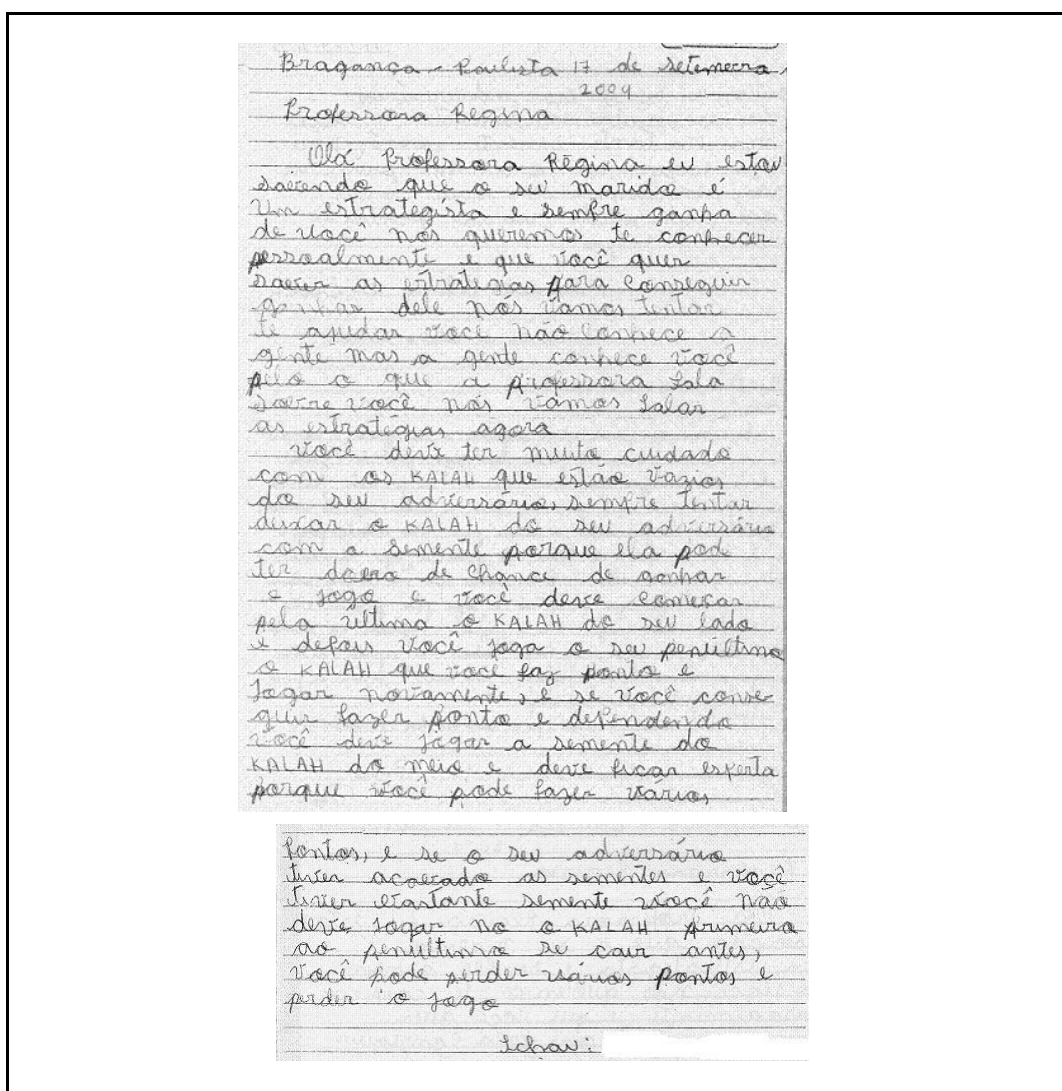 Bragança - Paulista 17 de setemecra,
2009
Professora Regina
Olá Professora Regina eu estou
saeendo que o seu marido é
Um estrategísta e sempre ganha
de você nós queremos te conhecer
pessoalmente e que você quer
saeer as estrategias para conseguir
ganhar dele nós vamos tentar
te ajudar você não conhece a
gente mas a gente conhece você
pelo o que a professora fala
soere você nós vamos falar
as estratégias agora
você deve ter muito cuidado
com os KALAH que estão vazios
do seu adversário, sempre tentar
deixar o KALAH do seu adversário
com a semente porque ela pode
ter doero de chance de ganhar
o jogo e você deve começar
pela última o KALAH do seu lado
e depois você joga o seu penúltimo
o KALAH que você faz ponto e
jogar novamente, e se você conse
guir fazer ponto e dependendo
você deve jogar a semente do
KALAH do meio e deve ficar esperta
porque você pode fazer vários
pontos, e se o seu adversário
tiver acaeado as sementes e você
tiver eastante semente você não
deve jogar no o KALAH primeiro
ao penúltimo se cair antes,
você pode perder vários pontos e
perder o jogo
Tchau: